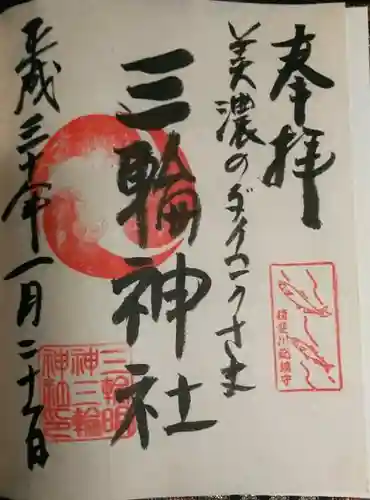 奉拝
美濃のダイコクさま
三輪神社
平成三十年一月二十一日
三輪明
神三輪
神社印
揖斐川鮎鎮守